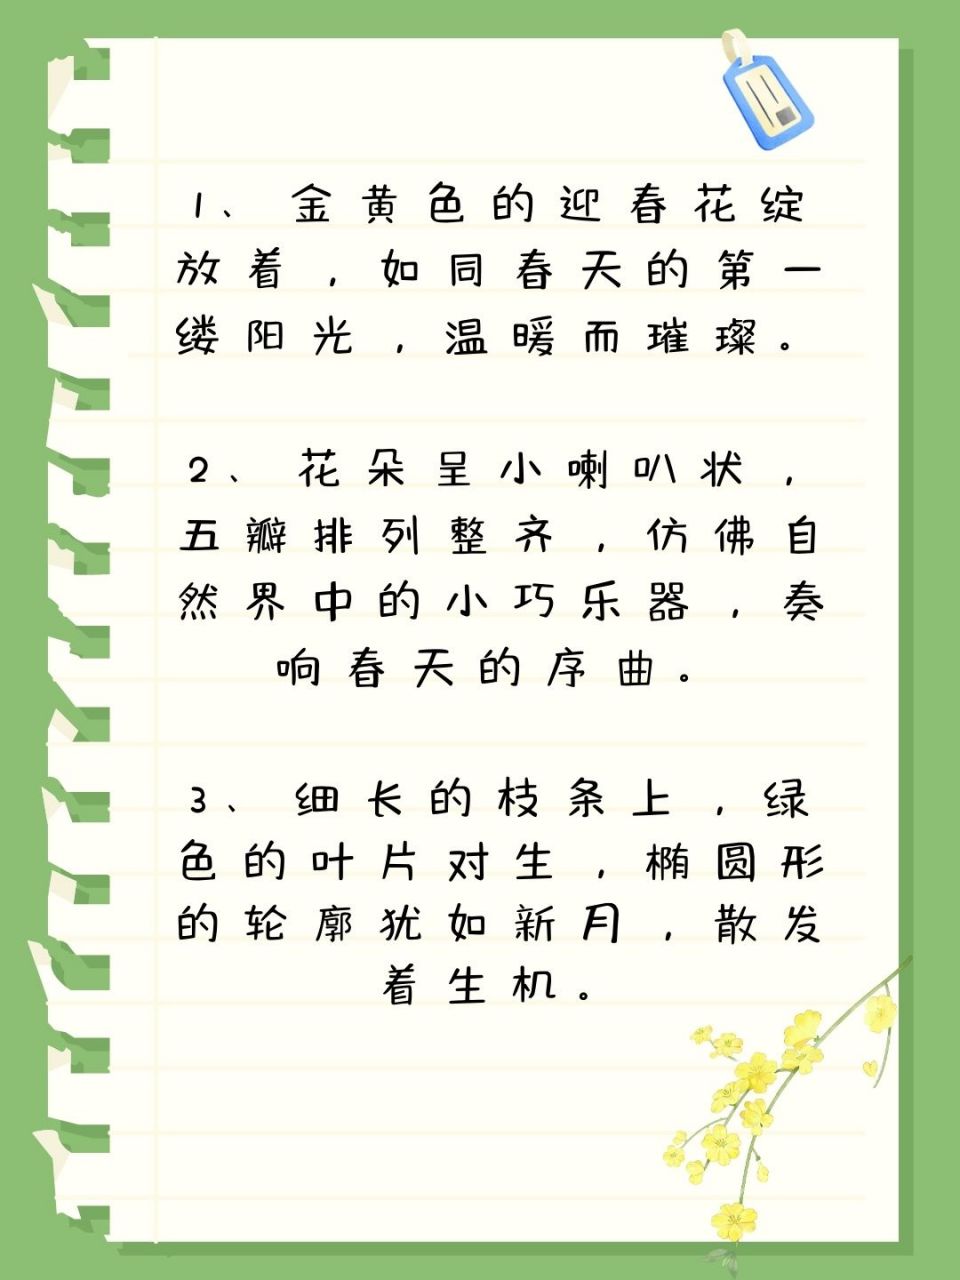 1、金黄色的迎春花绽
放着，如同春天的第一
缕阳光，温暖而璀璨。
2、花朵呈小喇叭状，
五瓣排列整齐，仿佛自
然界中的小巧乐器，奏
响春天的序曲。
3、细长的枝条上，绿
色的叶片对生，椭圆形
的轮廓犹如新月，散发
着生机。